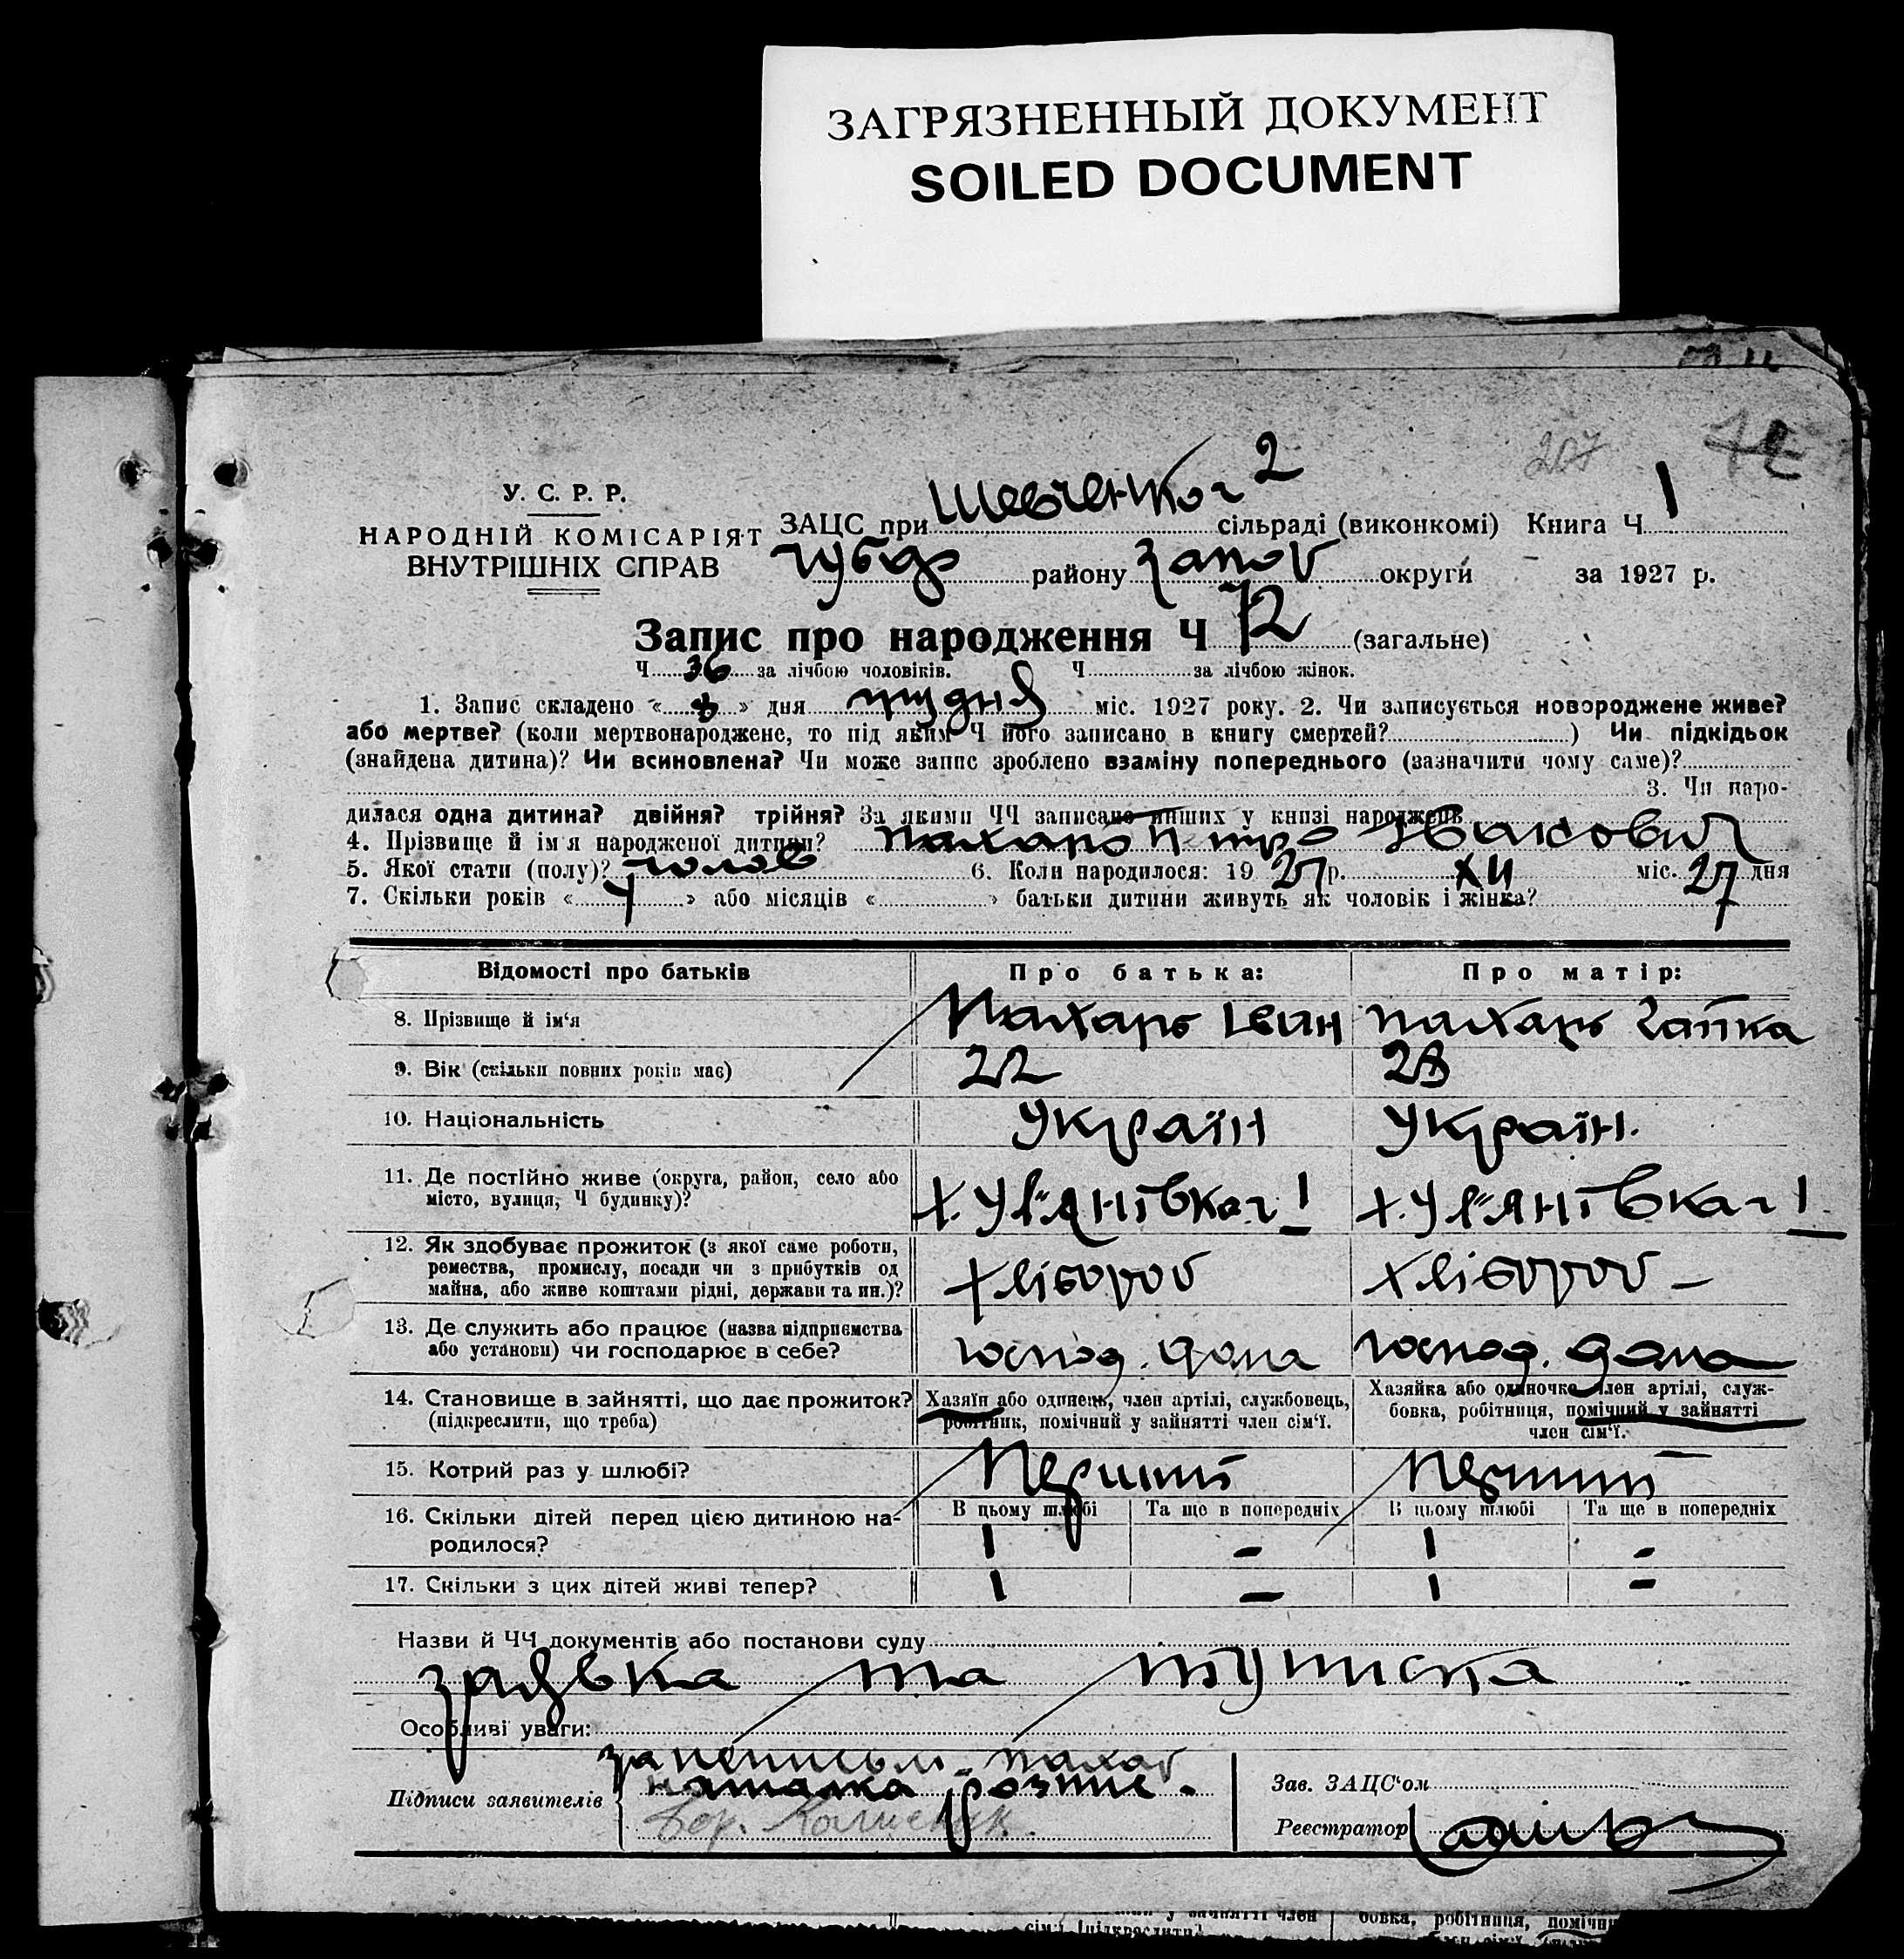 ЗАГРЯЗНЕННЫЙ ДОКУМЕНТ
SOILED DOCUMENT
207
У. С. Р. Р.
НАРОДНІЙ КОМІСАРІЯТ
ВНУТРІШНІХ СПРАВ
ЗАЦС при Шевченког 2 сільраді (виконкомі) Книга Ч 1
району Запоб округи за 1927 р.
Запис про народження Ч 72 (загальне)
Ч 36 за лічбою чоловіків. Ч за лічбою жінок.
1. Запис складено « » дня грудня міс. 1927 року. 2. Чи записується новороджене живе?
або мертве? (коли мертвонароджене, то під яким Ч його записано в книгу смертей? ) Чи підкідьок
(знайдена дитина)? Чи всиновлена? Чи може запис зроблено взаміну попереднього (зазначити чому саме)?
3. Чи наро-
дилася одна дитина? двійня? трійня? За якими ЧЧ записано инших у книзі народжень
4. Прізвище й ім'я народженої дитини? Пахарь Петро Іванович
5. Якої стати (полу)? чолов 6. Коли народилося: 1927 р. XII міс. 27 дня
7. Скільки років « » або місяців « » батьки дитини живуть як чоловік і жінка?
Відомості про батьків
Про батька:
Про матір:
8. Прізвище й ім'я
Пахарь Іван
Пахарь
9. Вік (скільки повних років має)
22
23
10. Національність
Україн
Україн.
11. Де постійно живе (округа, район, село або
місто, вулиця, Ч будинку)?
х. Ул'янівка г 1
х. Ул'янівка г 1
12. Як здобуває прожиток (з якої саме роботи,
ремества, промислу, посади чи з прибутків од
майна, або живе коштами рідні, держави та ин.)?
хлібороб
хлібороб –
13. Де служить або працює (назва підприємства
або установи) чи господарює в себе?
господ. дома
господ. дома
14. Становище в зайнятті, що дає прожиток?
(підкреслити, що треба)
Хазяїн або одинець, член артілі, службовець,
робітник, помічний у зайнятті член сім'ї.
Хазяйка або одиночка член артілі, служ-
бовка, робітниця, помічний у зайнятті
член сім'ї.
15. Котрий раз у шлюбі?
Перший
Перший
16. Скільки дітей перед цією дитиною на-
родилося?
В цьому шлюбі
Та ще в попередніх
В цьому шлюбі
Та ще в попередніх
1 – 1 –
17. Скільки з цих дітей живі тепер?
1 – 1 –
Назви й ЧЧ документів або постанови суду
заявка та
Особливі уваги:
Підписи заявителів
Наталка розпис.
Зав. ЗАЦС'ом
Реєстратор
бовка, робітниця,